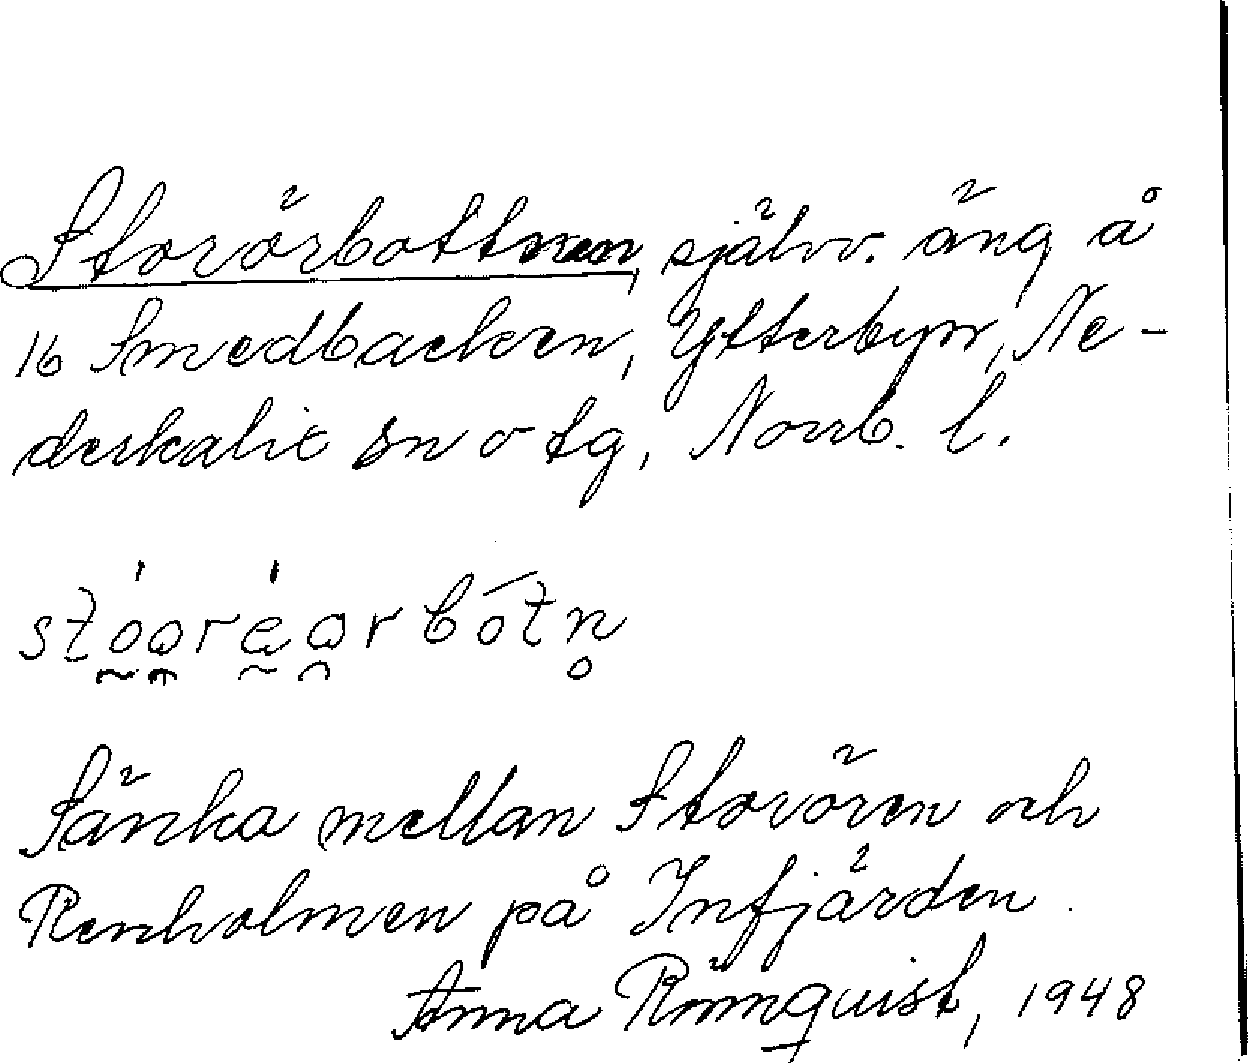 Storörbottnen, självv. äng å
16 Smedbacken, Ytterbyn, Ne-
derkalix sn o tg, Norrb. l.
Sänka mellan Storören och
Renholmen på Infjärden.
Anna Rönnquist, 1948